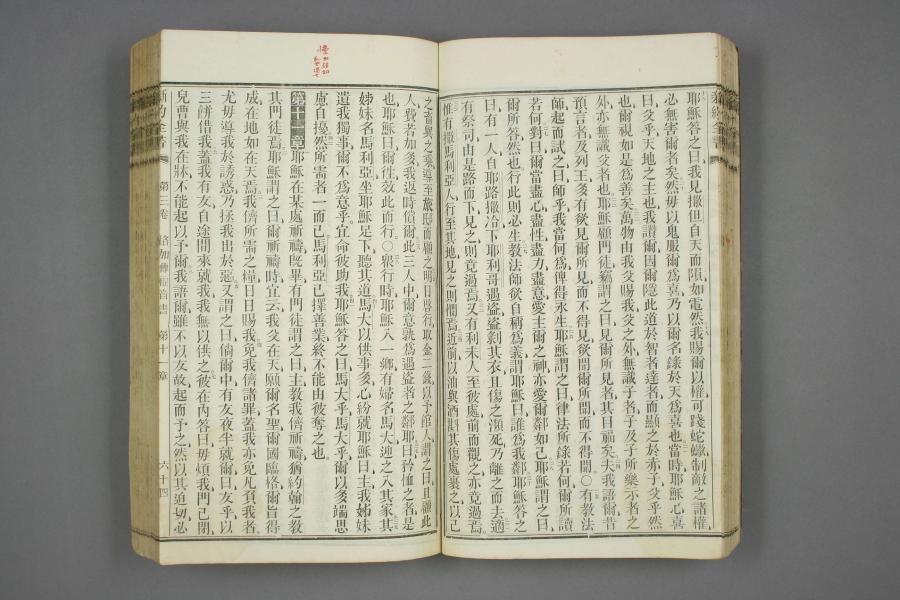 新約全書
耶穌答之曰、我見撒但、自天而隕、如電然、我賜爾以權、可踐蛇蠍、制敵之諸權、
必無害爾者矣、然毋以鬼服爾爲喜、乃以爾名錄於天爲喜也、當時耶穌心喜
曰、父乎、天地之主也、我讃爾、因爾隱此道於智者達者、而顯之於赤子、父乎、然
也、爾視如是爲善矣、萬物由我父賜我、父之外、無識子者、子及子所樂示者之
外、亦無識父者也、耶穌顧門徒、竊謂之曰、見爾所見者、其目福矣、夫我語爾、昔
預言者及列王、多有欲見爾所見而不得見、欲聞爾所聞而不得聞、○有教法
師起而試之、曰、師乎、我當何爲、俾得永生、耶穌謂之曰、律法所錄若何、爾所讀
若何、對曰、爾當盡心盡性盡力盡意、愛主爾之神、亦愛爾鄰如己、耶穌謂之曰、
爾所答然也、行此則必生、教法師欲自稱爲義、謂耶穌曰、誰爲我鄰、耶穌答之
曰、有一人、自耶路撒冷下耶利哥、遇盜、盜剝其衣、且傷之、瀕死、乃離之而去、適
有祭司由是路而下、見之則竟過焉、又有利未人至彼處、前而觀之、亦竟過焉、
惟有撒馬利亞人、行至其地、見之則憫焉、近前、以油與酒斟其傷處、裹之、以己
之畜與之乘、導至旅邸而顧之、明日啓行、取金二錢、以予館人、謂之曰、且顧此
人、費若加多、我返時償爾、此三人中、爾意孰爲遇盜者之鄰耶、曰、矜恤之者是
也、耶穌曰、爾往效此而行、○衆行時、耶穌入一鄉、有婦名馬大、迎之入其家、其
姊妹名馬利亞、坐耶穌足下、聽其道、馬大以供事多、心紛、就耶穌曰、主、我姊妹
遺我獨事、爾不爲意乎、宜命彼助我、耶穌答之曰、馬大乎、馬大乎、爾以多端思
慮自擾、然所需者一而已、馬利亞已擇善業、終不能由彼奪之也、
第十一章 耶穌在某處祈禱、旣畢、有門徒謂之曰、主教我儕祈禱、猶約翰之教
其門徒焉、耶穌謂之曰、爾祈禱時、宜云、我父在天、願爾名聖、爾國臨格、爾旨得
成在地、如在天焉、我儕所需之糧、日日賜我、免我儕諸罪、蓋我亦免凡負我者、
尤毋導我於誘惑、乃拯我出於惡、又謂之曰、倘爾中有友、夜半就爾曰、友乎、以
三餅借我、蓋我有友、自途間來就我、我無以供之、彼在內答曰、毋煩我、門已閉、
兒曹與我在牀、不能起以予爾、我語爾、雖不以友故、起而予之、然以其迫切、必
新約全書 第三卷 路加傳福音書 第十一章 六十四